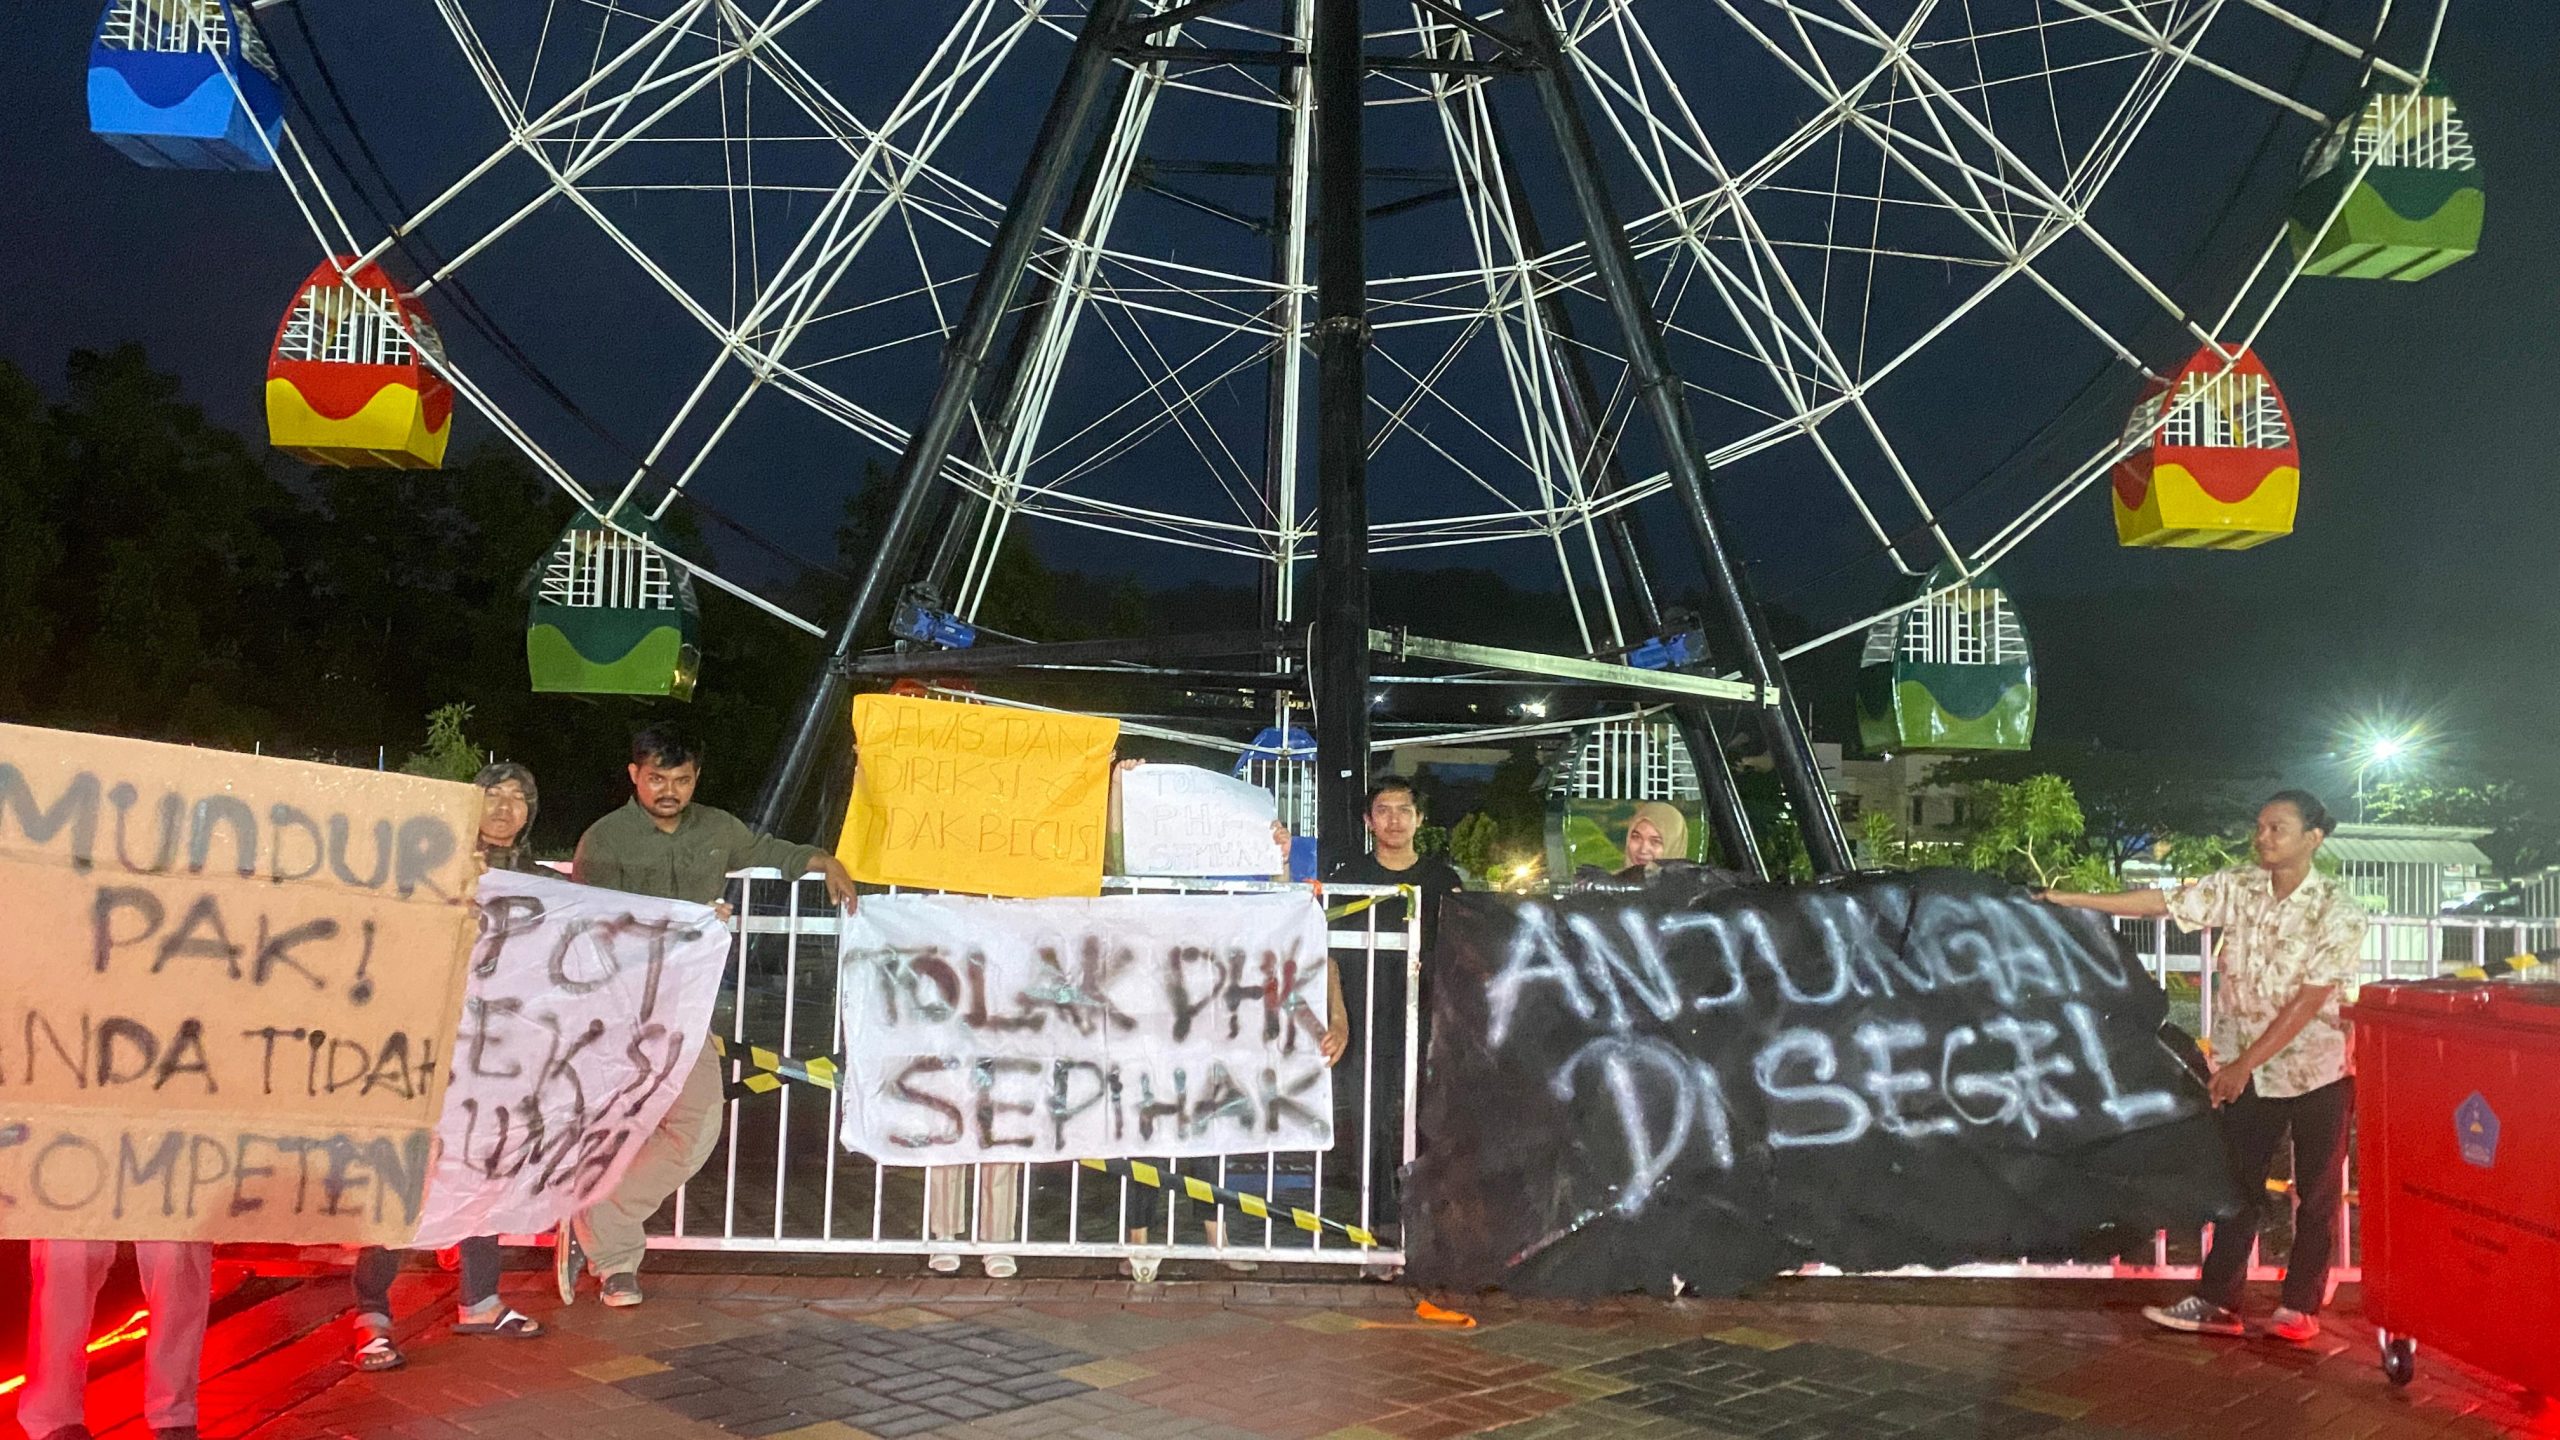 MUNDUR
PAK!
ANDA TIDAK
KOMPETEN
COPOT
DIREKSI
DEWAS DAN
DIREKSI
TIDAK BECUS!
TOLAK
PHK
SEPIHAK
TOLAK PHK
SEPIHAK
ANJUNGAN
DI SEGEL